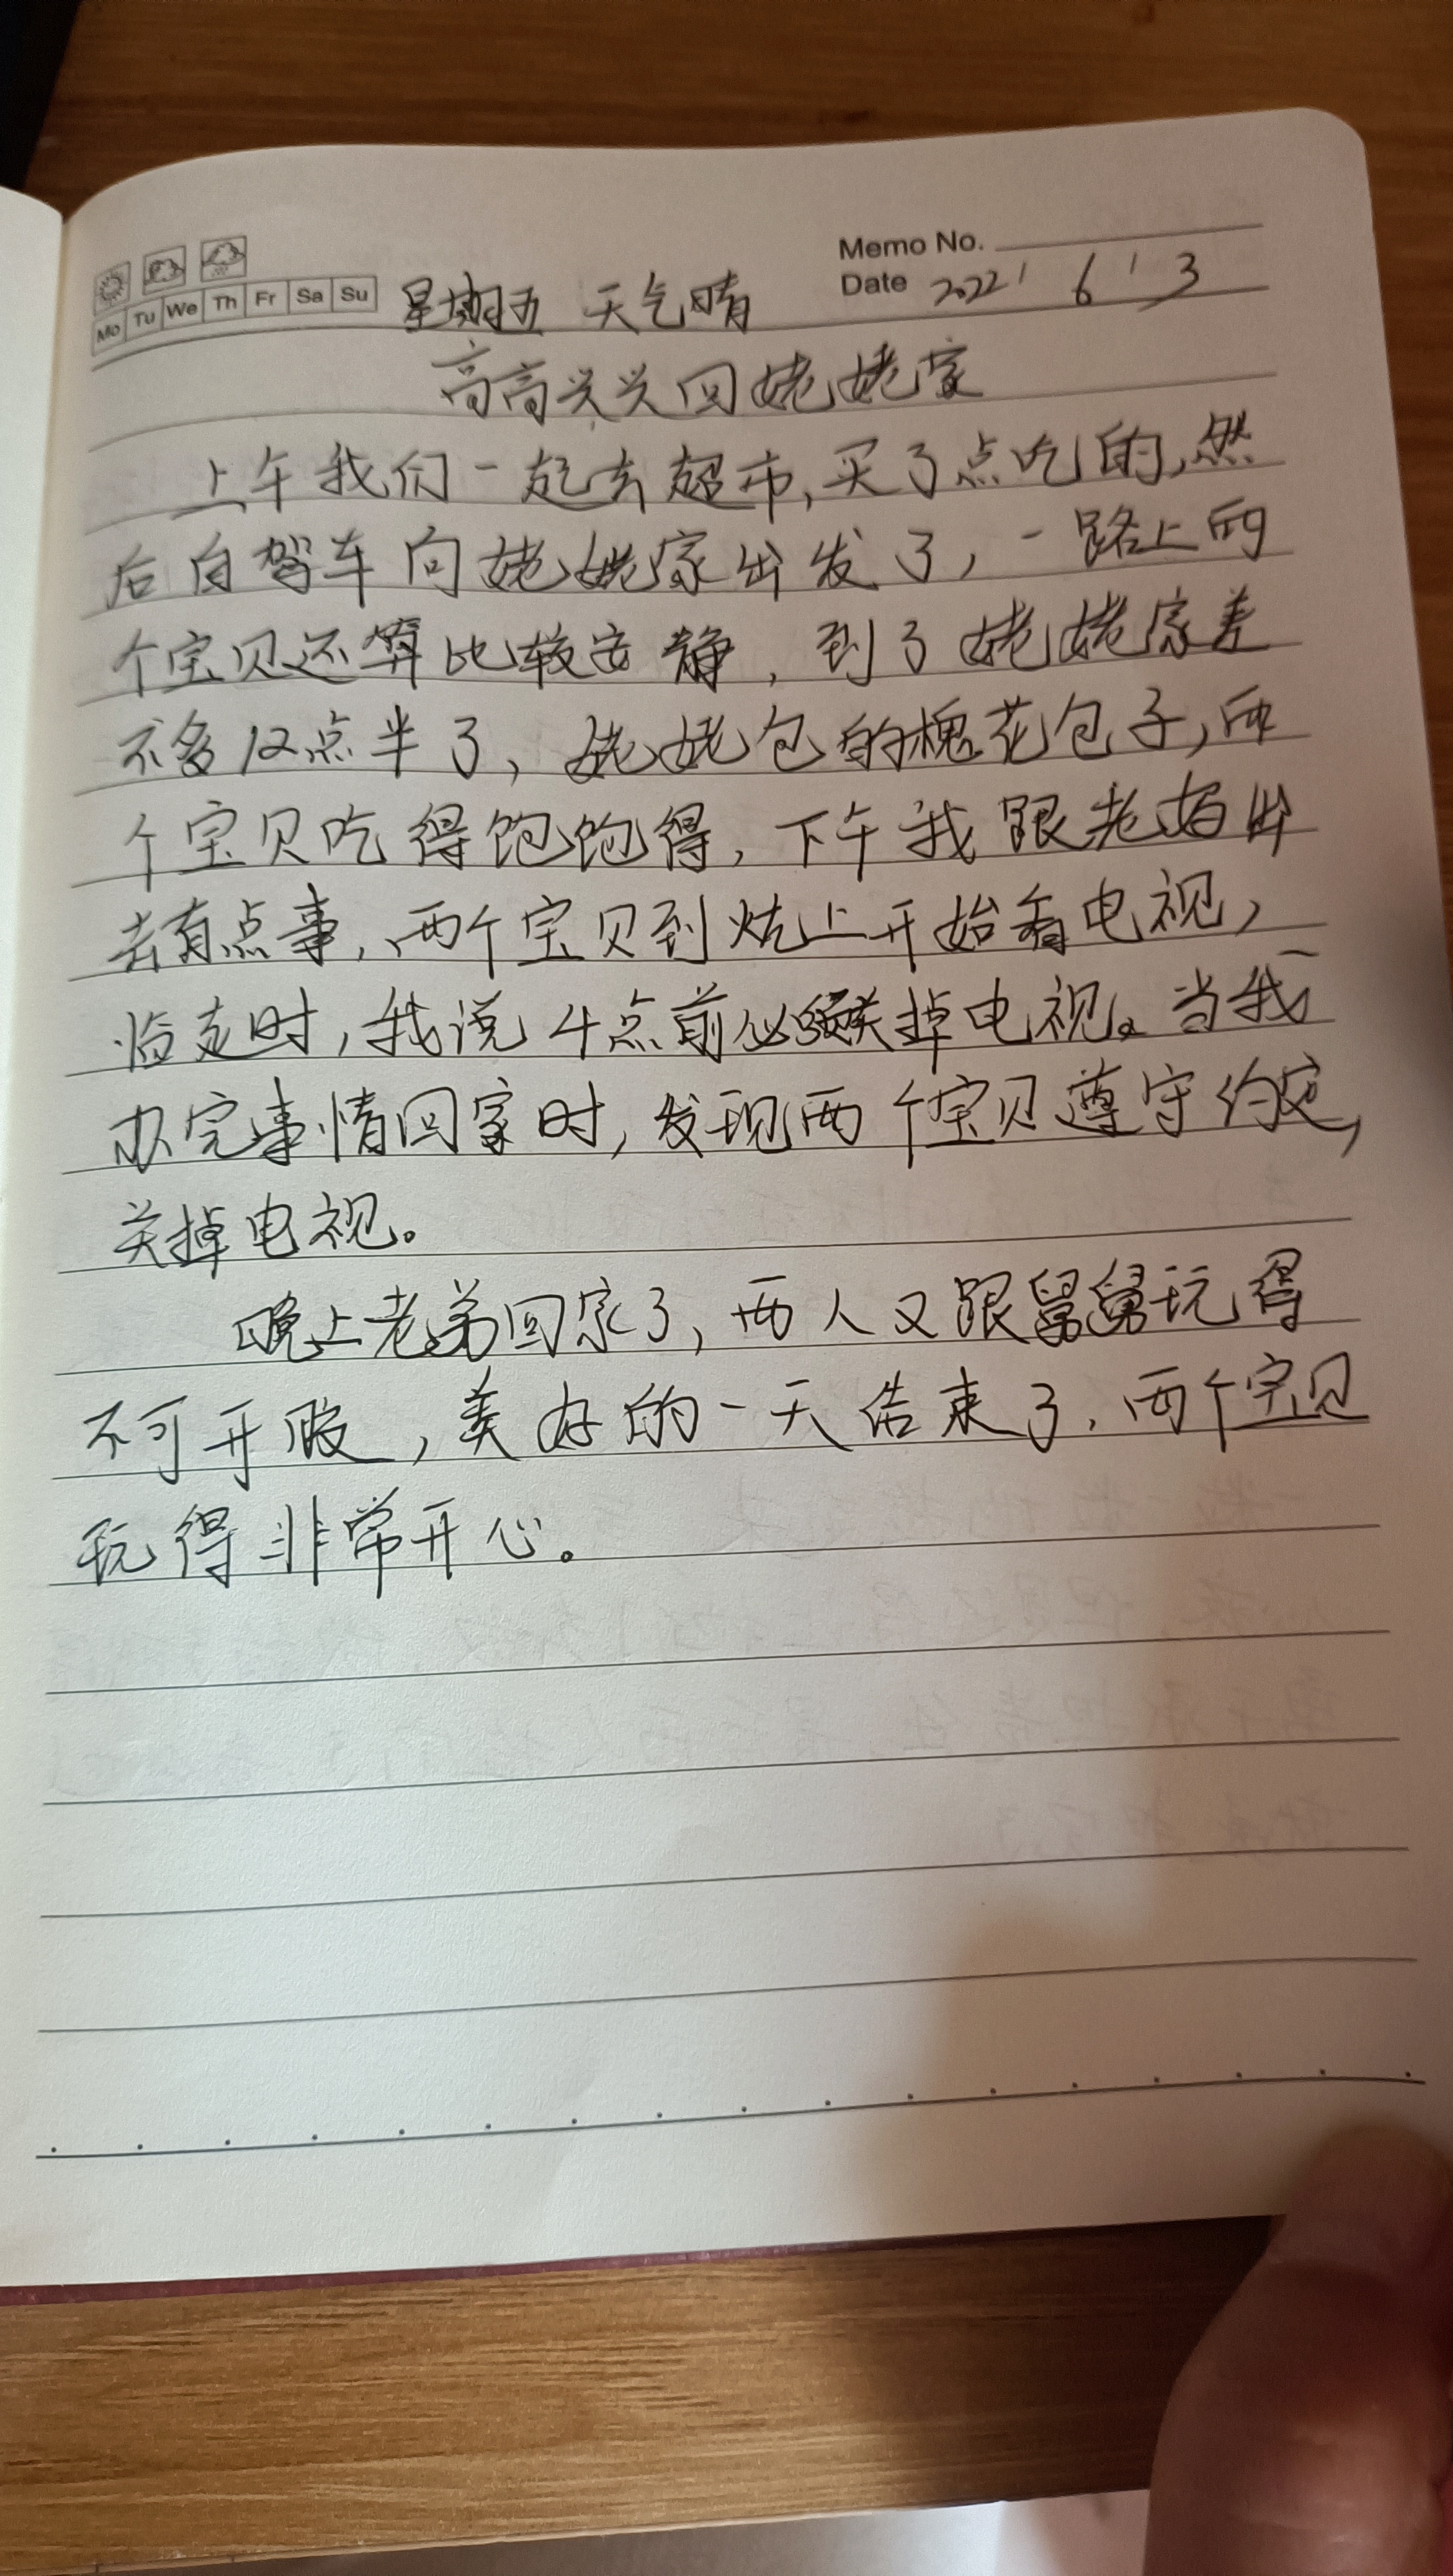 Memo No.
Mo Tu We Th Fr Sa Su 星期五 天气晴 Date 2022 / 6 / 3
高高兴兴回姥姥家
上午我们一起去超市,买了点吃的,然
后自驾车向姥姥家出发了,一路上两
个宝贝还算比较安静,到了姥姥家差
不多12点半了,姥姥包的槐花包子,两
个宝贝吃得饱饱得,下午我跟老姑出
去有点事,两个宝贝到炕上开始看电视,
临走时,我说4点前必须关掉电视。当我
办完事情回家时,发现两个宝贝遵守约定,
关掉电视。
晚上老弟回家了,两人又跟舅舅玩得
不可开胶,美好的一天结束了,两个宝贝
玩得非常开心。